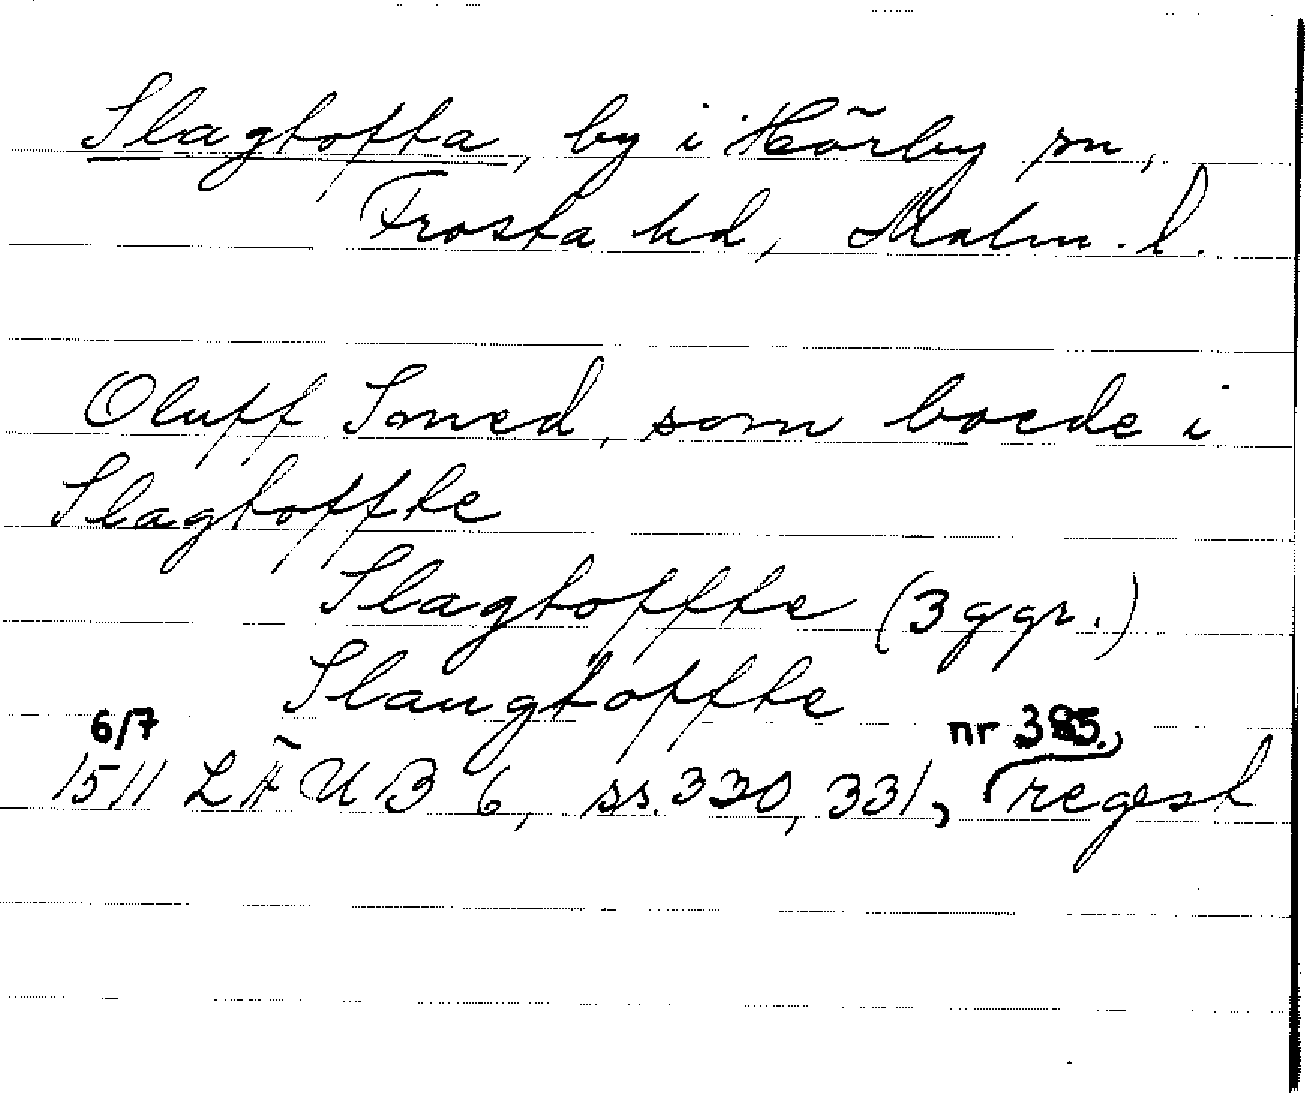 Slagtofta, by i Hörby sn,
Frosta hd, Malm. l.
Oluff Smed, som boede i
Slagtoffte
Slagtoffte (3 ggr.)
Slaugtoffte
6/7 nr 385.,
1511 LÄUB 6, ss. 330, 331, regest